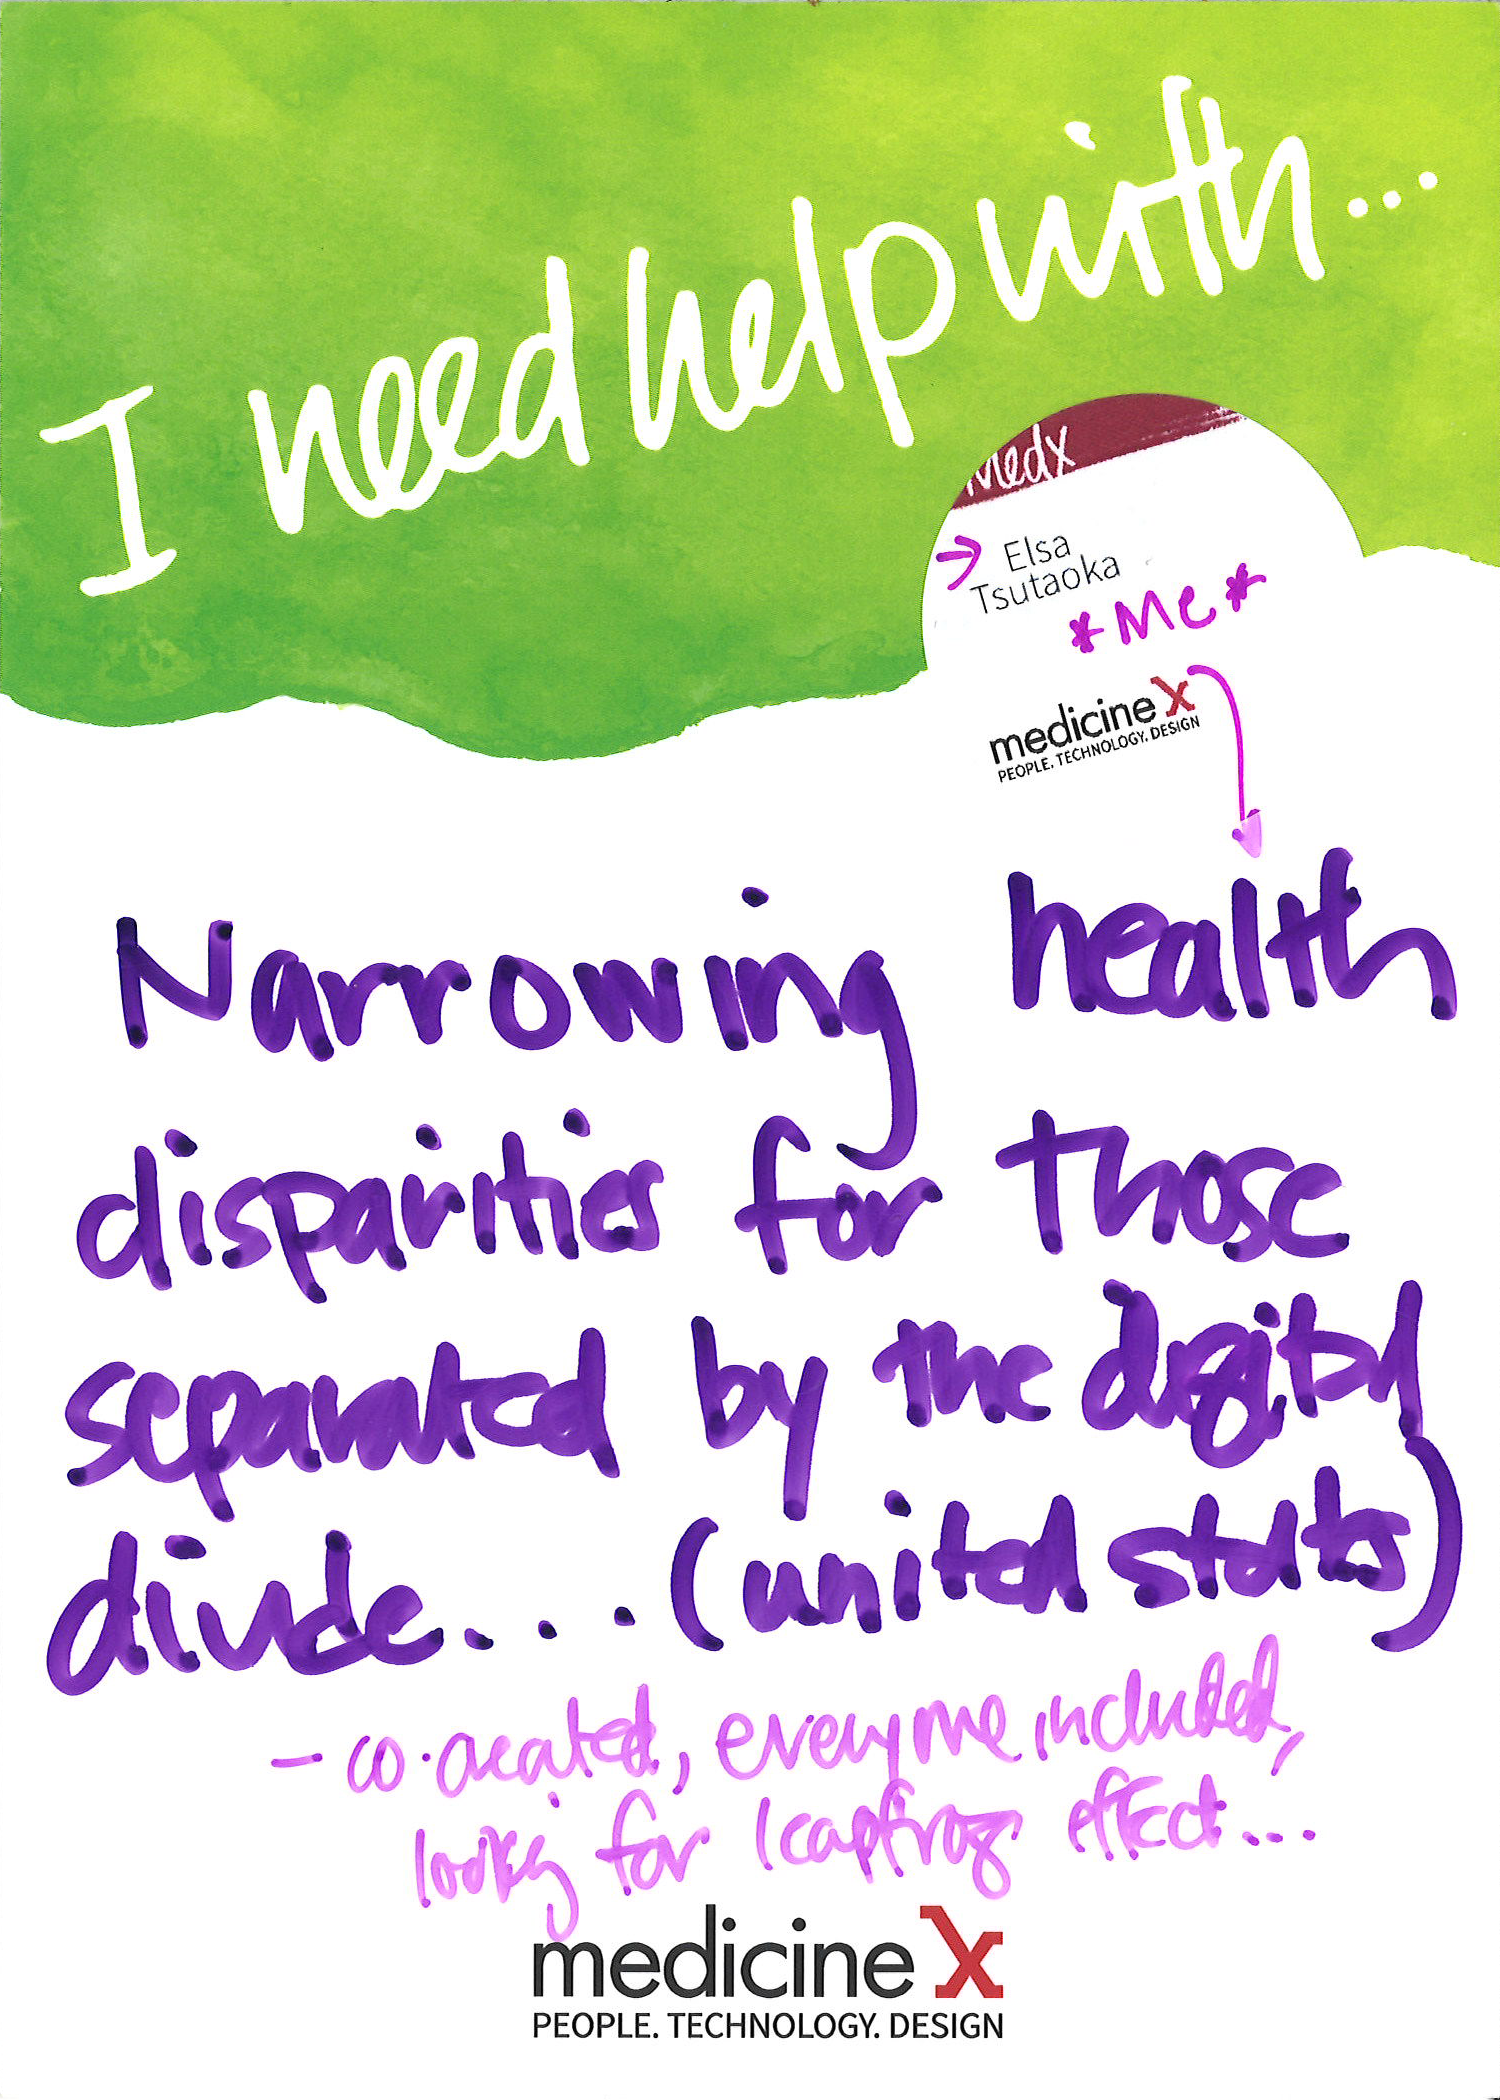 I need help with...
Medx
→ Elsa
Tsutaoka
*Me*
medicine X
PEOPLE. TECHNOLOGY. DESIGN
Narrowing health
disparities for those
separated by the digital
divide.... (united states)
- co-created, everyone included,
looking for leapfrog effect...
medicine X
PEOPLE. TECHNOLOGY. DESIGN